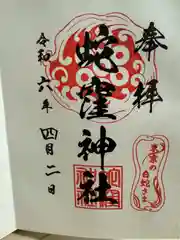 奉拝
蛇窪神社
令和六年四月二日
白蛇さま